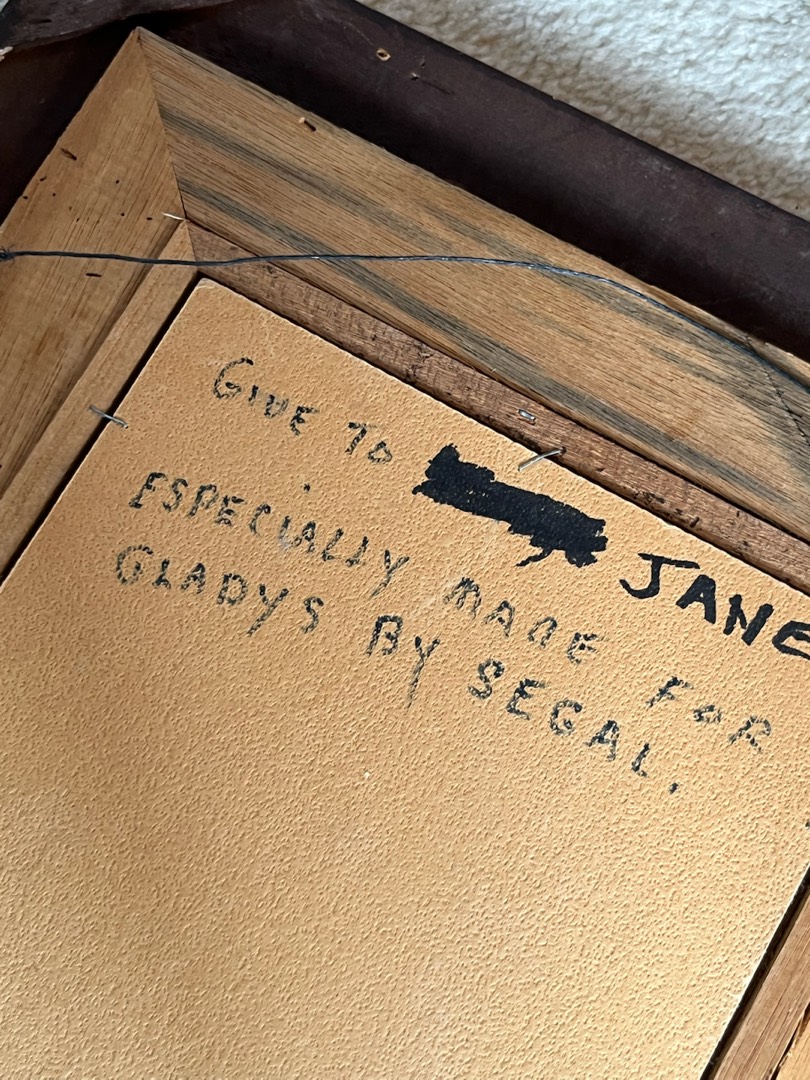 GIVE TO JANE
ESPECIALLY MADE FOR
GLADYS BY SEGAL.